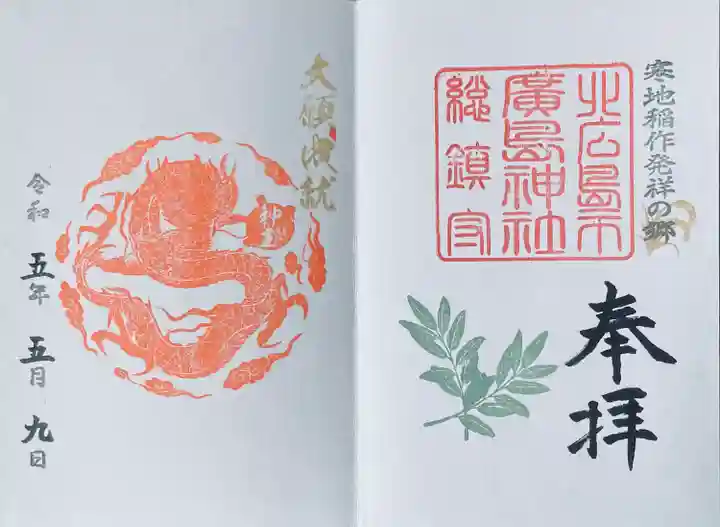 寒地稲作発祥の郷
北広島市
廣島神社
総鎮守
奉拝
大願成就
令和五年五月九日